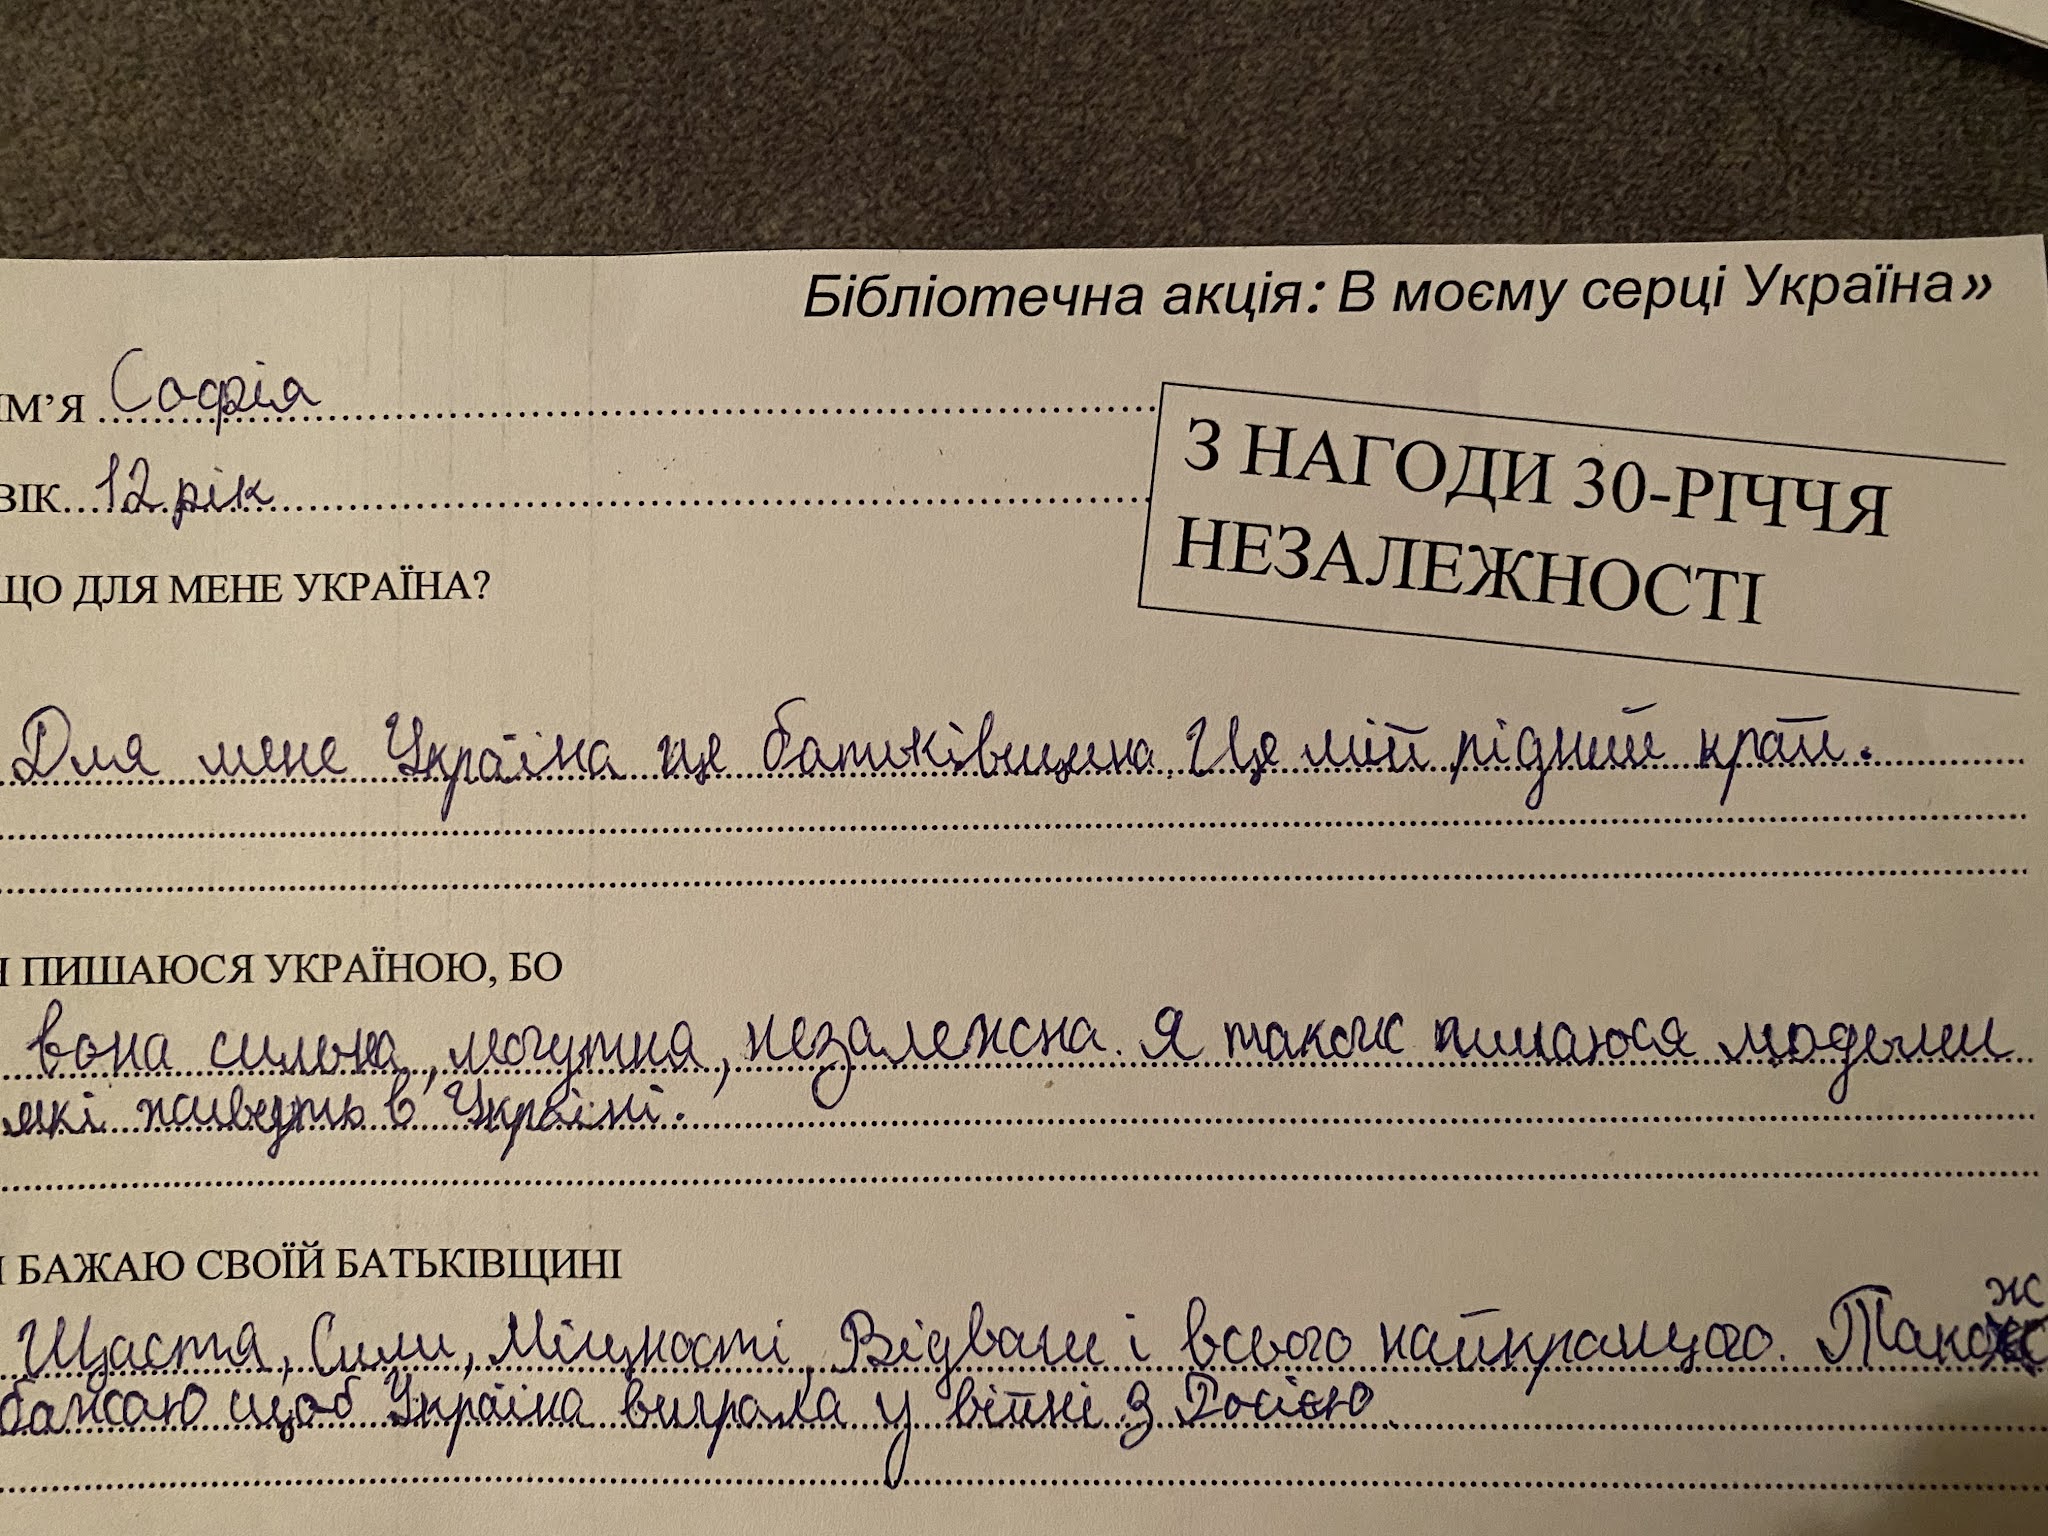 Бібліотечна акція: В моєму серці Україна»
ІМ’Я Софія
ВІК 12 рік
З НАГОДИ 30-РІЧЧЯ
НЕЗАЛЕЖНОСТІ
ЩО ДЛЯ МЕНЕ УКРАЇНА?
Для мене Україна це батьківщина. Це мій рідний край.
Я ПИШАЮСЯ УКРАЇНОЮ, БО
вона сильна, могутня, незалежна. Я також пишаюся людьми
які живуть в Україні.
Я БАЖАЮ СВОЇЙ БАТЬКІВЩИНІ
Щастя, Сили, Міцності, Відваги і всього найкращого. Також
бажаю щоб Україна виграла у війні з Росією.